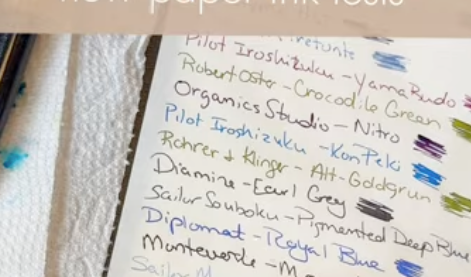 new paper ink tests
Pilot Iroshizuku - Yama Budo
Robert Oster - Crocodile Green
Organics Studio - Nitro
Pilot Iroshizuku - Kon Peki
Rohrer & Klinger - Alt-Goldgrun
Diamine - Earl Grey
Sailor Souboku - Pigmented Deep Blue
Diplomat - Royal Blue
Monteverde -
Sailor